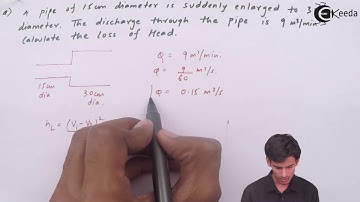 a) A pipe of 15cm diameter is suddenly enlarged to 3
diameter. The discharge through the pipe is 9 m³/min.
Calculate the loss of Head.
Ekeeda
15cm
dia
30cm
dia.
Q = 9 m³/min.
Q = 9/60 m³/s.
Q = 0.15 m³/s
hL = (V1 - V2)²